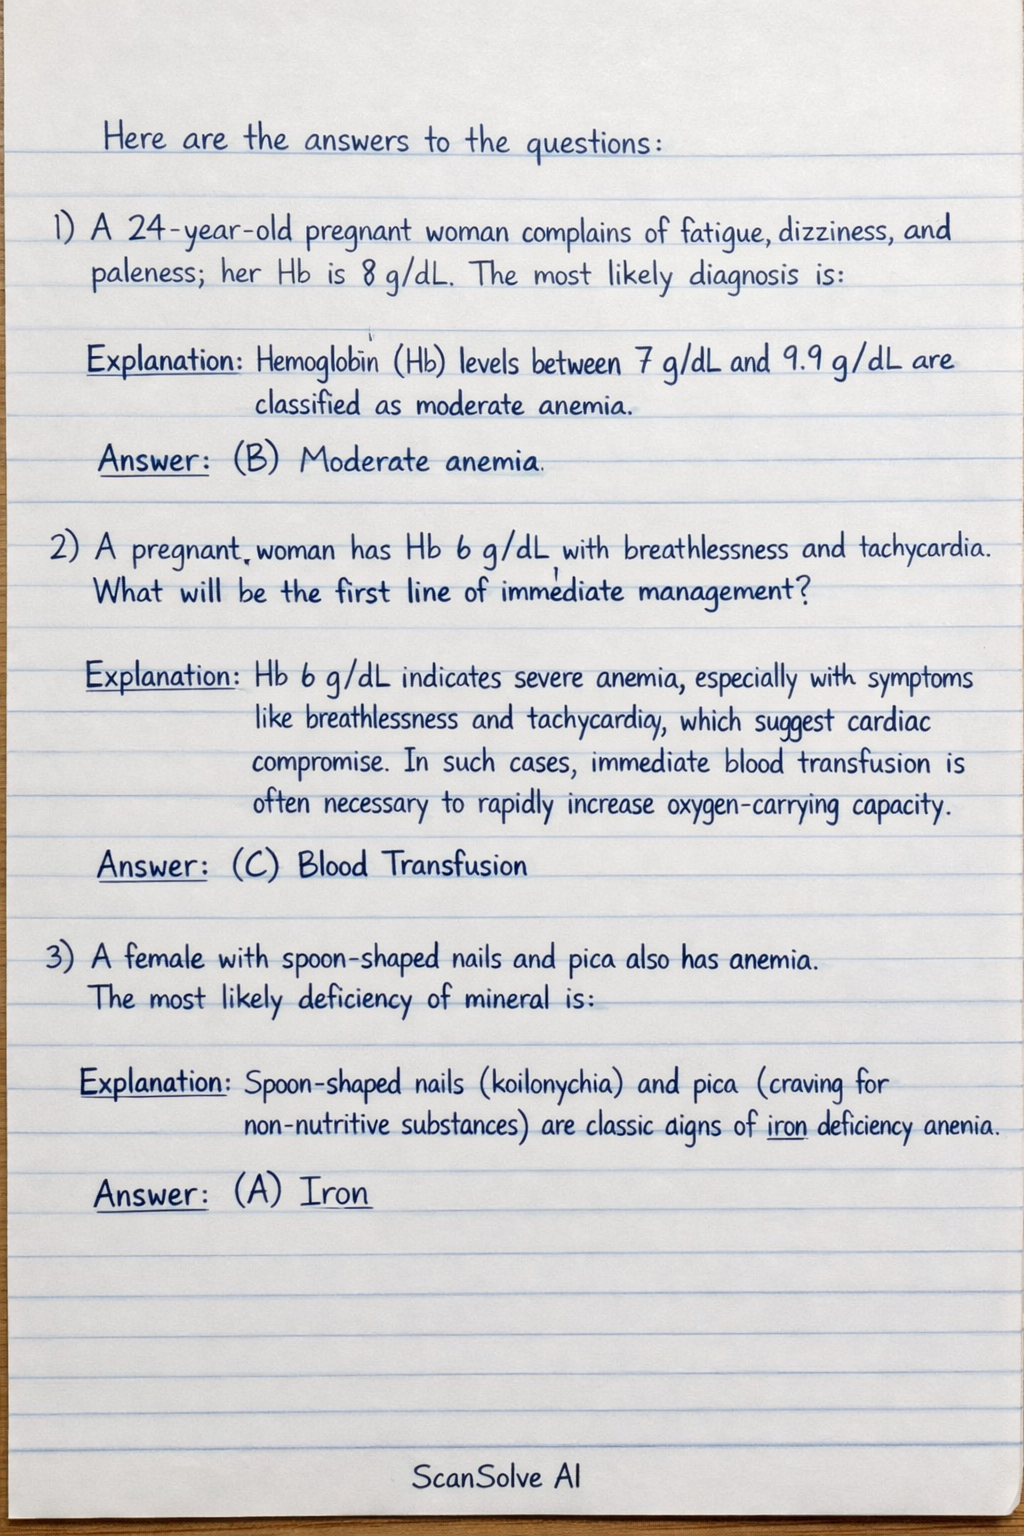 Here are the answers to the questions:
1) A 24-year-old pregnant woman complains of fatigue, dizziness, and
paleness; her Hb is 8 g/dL. The most likely diagnosis is:
Explanation: Hemoglobin (Hb) levels between 7 g/dL and 9.9 g/dL are
classified as moderate anemia.
Answer: (B) Moderate anemia.
2) A pregnant woman has Hb 6 g/dL with breathlessness and tachycardia.
What will be the first line of immediate management?
Explanation: Hb 6 g/dL indicates severe anemia, especially with symptoms
like breathlessness and tachycardiay, which suggest cardiac
compromise. In such cases, immediate blood transfusion is
often necessary to rapidly increase oxygen-carrying capacity.
Answer: (C) Blood Transfusion
3) A female with spoon-shaped nails and pica also has anemia.
The most likely deficiency of mineral is:
Explanation: Spoon-shaped nails (koilonychia) and pica (craving for
non-nutritive substances) are classic aigns of iron deficiency anenia.
Answer: (A) Iron
ScanSolve AI